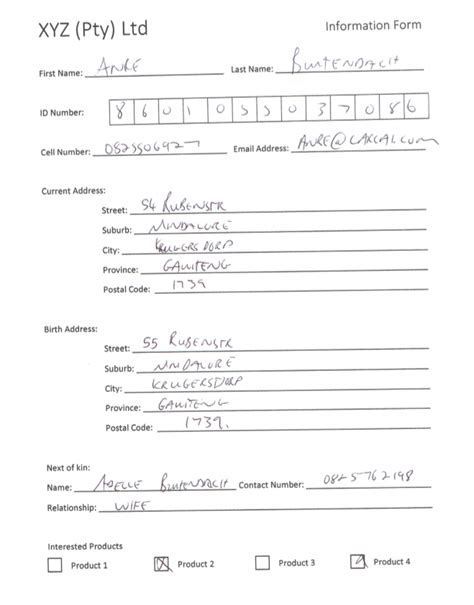 XYZ (Pty) Ltd Information Form
First Name: ANRE Last Name: BUITENDACH
ID Number: 8 6 0 1 0 5 5 0 3 7 0 8 6
Cell Number: 0825506927 Email Address: ANRE@CARCAL.COM
Current Address:
Street: 54 RUBENSTR
Suburb: MINDALORE
City: KRUGERSDORP
Province: GAUTENG
Postal Code: 1739
Birth Address:
Street: 55 RUBENSTR
Suburb: MINDALORE
City: KRUGERSDORP
Province: GAUTENG
Postal Code: 1739.
Next of kin:
Name: ADELLE BUITENDACH Contact Number: 0825762198
Relationship: WIFE
Interested Products
Product 1 Product 2 Product 3 Product 4